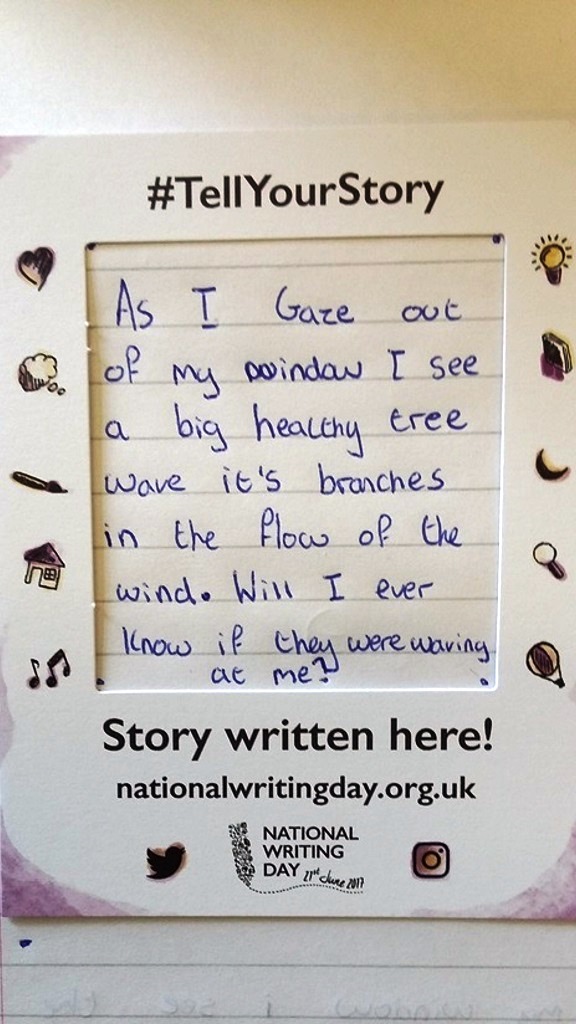 #TellYourStory
As I Gaze out
of my window I see
a big healthy tree
wave it's branches
in the flow of the
wind. Will I ever
know if they were waving
at me?
Story written here!
nationalwritingday.org.uk
NATIONAL
WRITING
DAY 21st June 2017